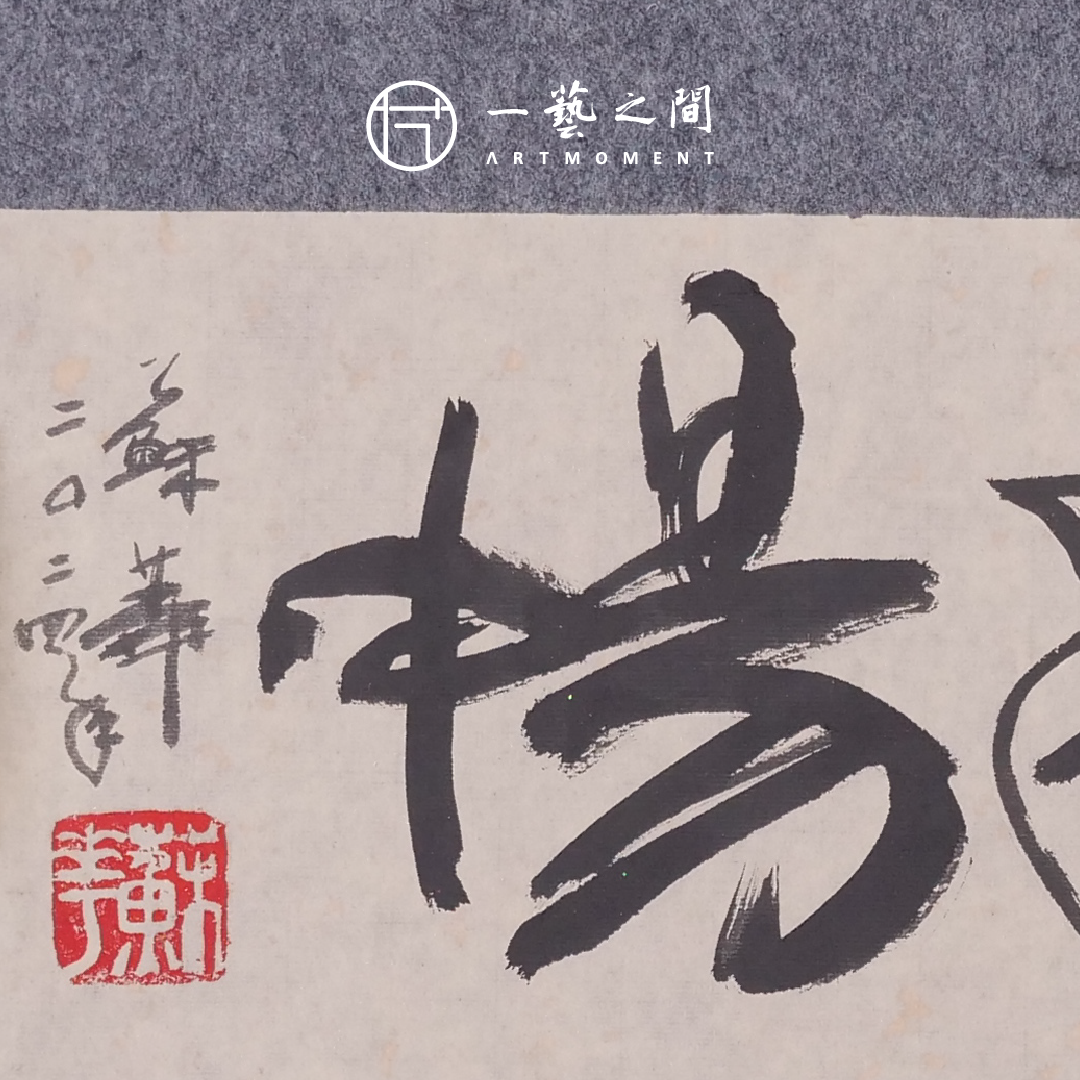 一藝之間
ARTMOMENT
暢
蘇華
二〇二四年